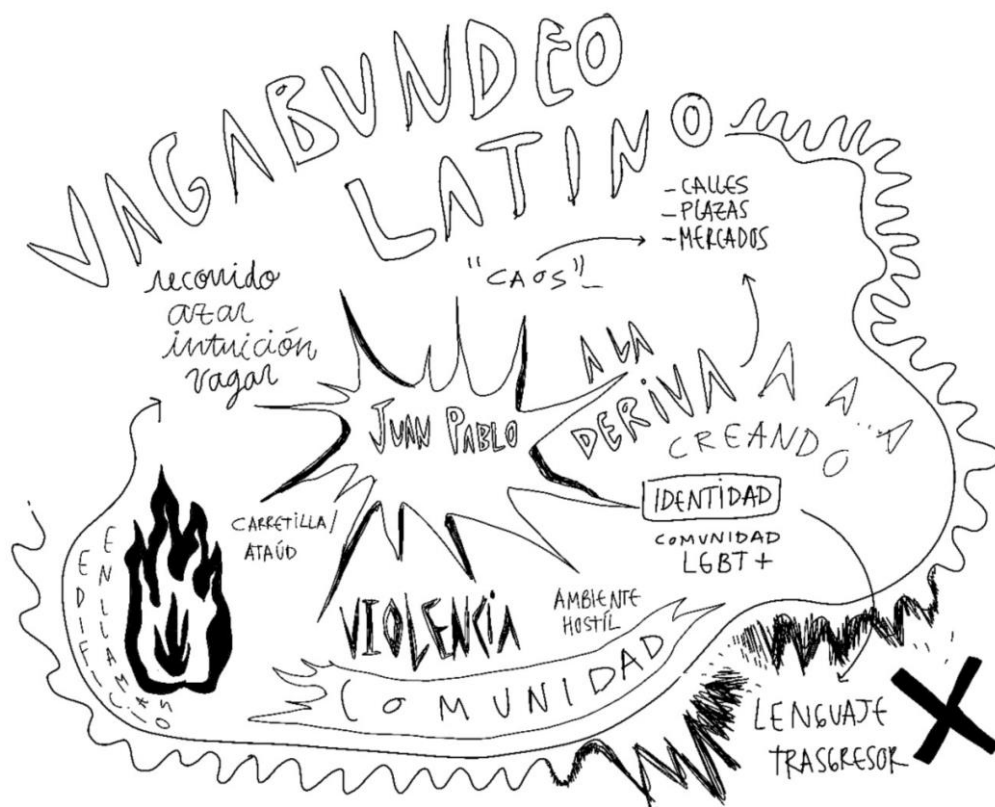 VAGABUNDEO
LATINO
recorrido
azar
intuición
vagar
"CAOS"_
- CALLES
- PLAZAS
- MERCADOS
JUAN PABLO
A LA
DERIVA A A...A
CREANDO
IDENTIDAD
COMUNIDAD
LGBT+
CARRETILLA/
ATAÚD
EDIFICIO
EN LLAMAS
VIOLENCIA
AMBIENTE
HOSTÍL
COMUNIDAD
LENGUAJE
TRASGRESOR